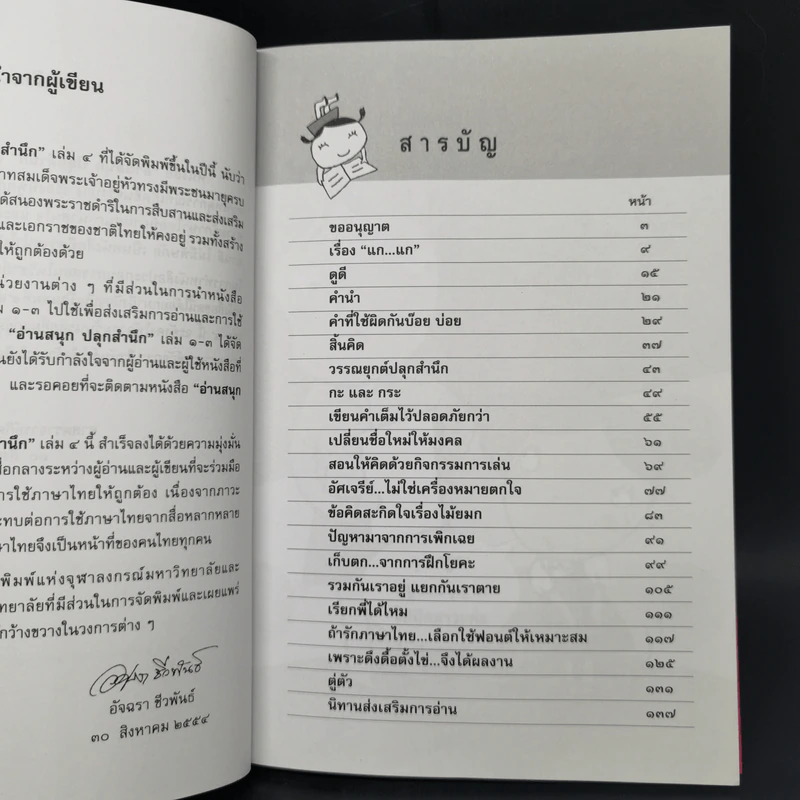 จากผู้เขียน
สำนึก” เล่ม ๔ ที่ได้จัดพิมพ์ขึ้นในปีนี้ นับว่า
บาทสมเด็จพระเจ้าอยู่หัวทรงมีพระชนมายุครบ
ได้สนองพระราชดำริในการสืบสานและส่งเสริม
และเอกราชของชาติไทยให้คงอยู่ รวมทั้งสร้าง
ให้ถูกต้องด้วย
หน่วยงานต่าง ๆ ที่มีส่วนในการนำหนังสือ
๑-๓ ไปใช้เพื่อส่งเสริมการอ่านและการใช้
“อ่านสนุก ปลุกสำนึก” เล่ม ๑-๓ ได้จัด
ยังได้รับกำลังใจจากผู้อ่านและผู้ใช้หนังสือที่
และรอคอยที่จะติดตามหนังสือ “อ่านสนุก
สำนึก” เล่ม ๔ นี้ สำเร็จลงได้ด้วยความมุ่งมั่น
สื่อกลางระหว่างผู้อ่านและผู้เขียนที่จะร่วมมือ
การใช้ภาษาไทยให้ถูกต้อง เนื่องจากภาวะ
กระทบต่อการใช้ภาษาไทยจากสื่อหลากหลาย
ภาษาไทยจึงเป็นหน้าที่ของคนไทยทุกคน
พิมพ์แห่งจุฬาลงกรณ์มหาวิทยาลัยและ
วิทยาลัยที่มีส่วนในการจัดพิมพ์และเผยแพร่
กว้างขวางในวงการต่าง ๆ
อัจฉรา ชีวพันธ์
อัจฉรา ชีวพันธ์
๓๐ สิงหาคม ๒๕๕๔
สารบัญ
หน้า
ขออนุญาต ๓
เรื่อง “แก...แก” ๙
ดูดี ๑๕
คำนำ ๒๑
คำที่ใช้ผิดกันบ๊อย บ่อย ๒๙
สิ้นคิด ๓๗
วรรณยุกต์ปลุกสำนึก ๔๓
กะ และ กระ ๔๙
เขียนคำเต็มไว้ปลอดภัยกว่า ๕๕
เปลี่ยนชื่อใหม่ให้มงคล ๖๑
สอนให้คิดด้วยกิจกรรมการเล่น ๖๙
อัศเจรีย์...ไม่ใช่เครื่องหมายตกใจ ๗๗
ข้อคิดสะกิดใจเรื่องไม้ยมก ๘๓
ปัญหามาจากการเพิกเฉย ๙๑
เก็บตก...จากการฝึกโยคะ ๙๙
รวมกันเราอยู่ แยกกันเราตาย ๑๐๕
เรียกพี่ได้ไหม ๑๑๑
ถ้ารักภาษาไทย...เลือกใช้ฟอนต์ให้เหมาะสม ๑๑๗
เพราะดึงดื้อตั้งไข่...จึงได้ผลงาน ๑๒๕
ตู่ตัว ๑๓๑
นิทานส่งเสริมการอ่าน ๑๓๗